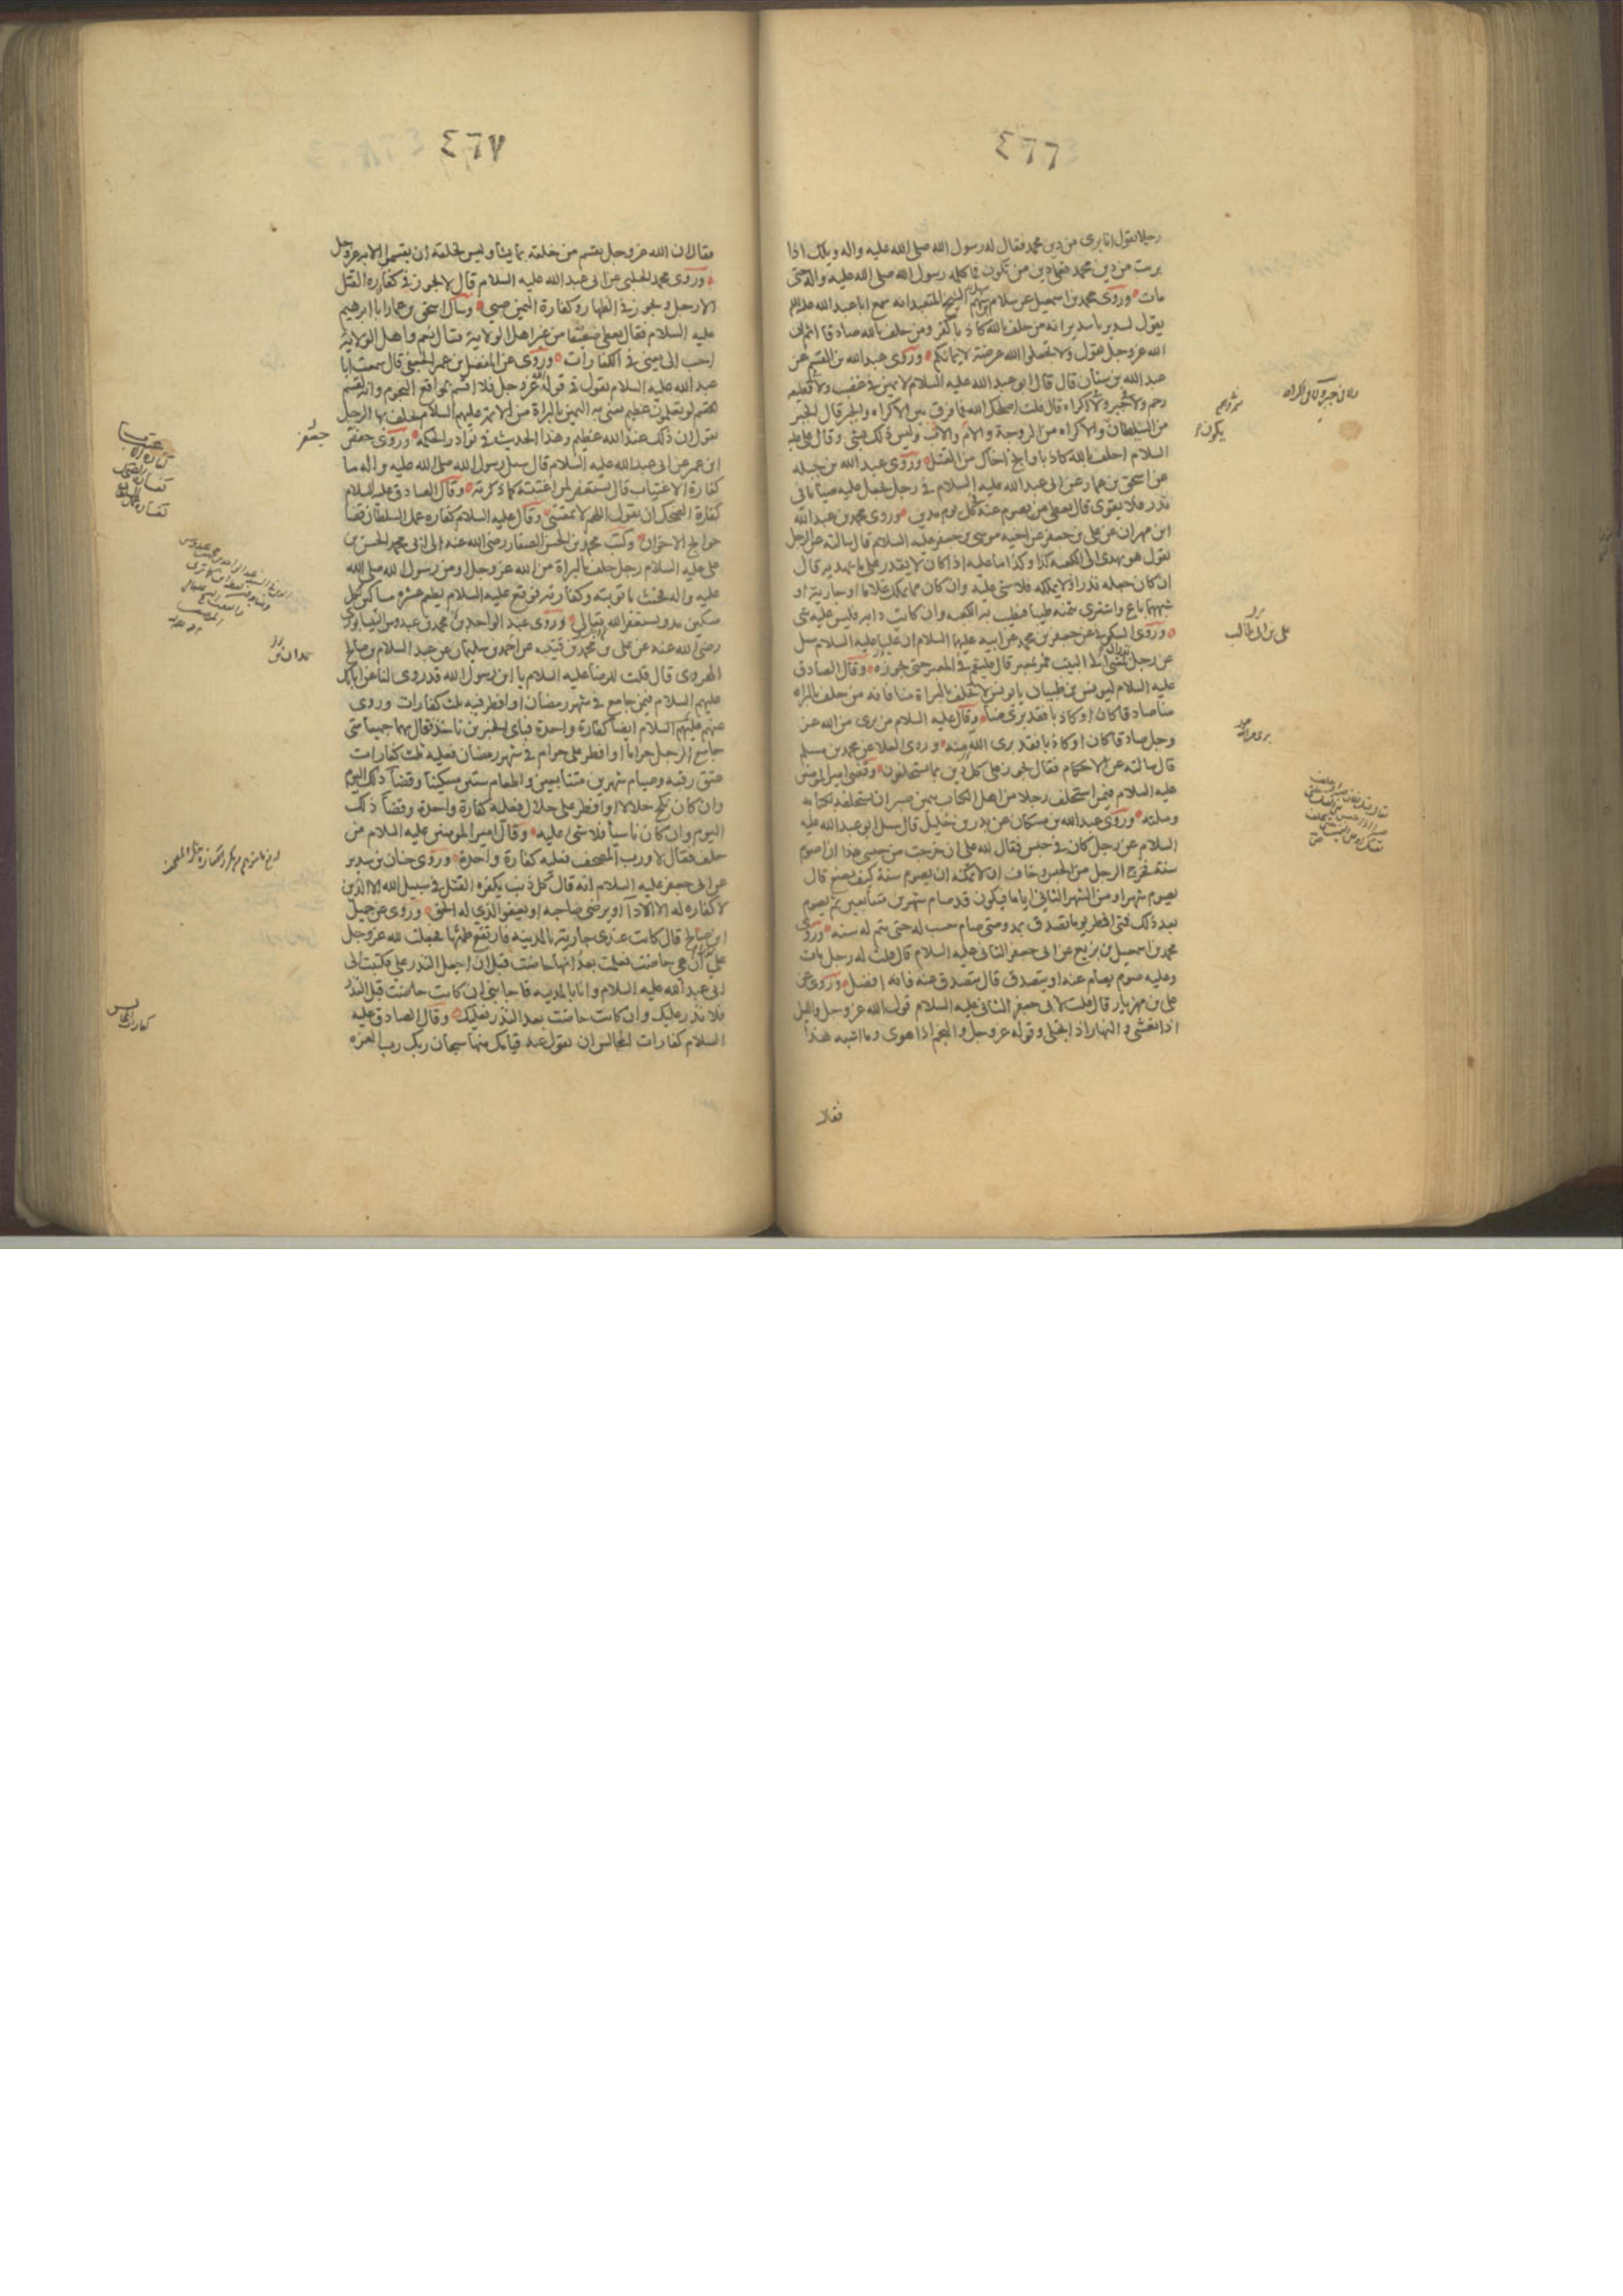 ٤٦٦
رجلا يقول انا برئ من دين محمد فقال له رسول الله صلى الله عليه واله ويلك اذا
برئت من دين محمد فعلى دين من تكون فما كلمه رسول الله صلى الله عليه واله حتى
مات وروى محمد بن اسمعيل عن سلام بن سهم الشيخ المتعبد انه سمع ابا عبد الله عليه السلام
يقول لسدير يا سدير انه من حلف بالله كاذبا كفر ومن حلف بالله صادقا اثم ان
الله عز وجل يقول ولا تجعلوا الله عرضة لايمانكم وروى عبد الله بن القسم عن
عبد الله بن سنان قال قال ابو عبد الله عليه السلام لا يمين في غضب ولا قطيعة
رحم ولا جبر ولا اكراه قال قلت اصلحك الله فما فرق بين الاكراه والجبر قال الجبر
من السلطان والاكراه من الزوجة والام والاب وليس ذلك بشئ وقال على عليه
السلام احلف بالله كاذبا وانج اخاك من القتل وروى عبد الله بن جبله
عن اسحق بن عمار عن ابى عبد الله عليه السلام في رجل يجعل عليه صياما فى
نذر فلا يقوى قال يعطى من يصوم عنه كل يوم مدين وروى محمد بن عبد الله
ابن مهران عن على بن جعفر عن اخيه موسى بن جعفر عليه السلام قال سالته عن الرجل
يقول هو يهدى الى الكعبه كذا وكذا ما عليه اذا كان لا يقدر على ما يهديه قال
ان كان جعله نذرا ولا يملكه فلا شئ عليه وان كان مما يملك غلاما او جارية او
شبههما باع واشترى بثمنه طيبا فيطيب به الكعبه وان كانت دابه فليس عليه شئ
وروى السكونى عن جعفر بن محمد عن ابيه عليهما السلام ان عليا عليه السلام سئل
عن رجل نذر ان يمشى الى البيت فمر بمعبر قال فليقم فى المعبر حتى يجوزه وقال الصادق
عليه السلام ليونس بن ظبيان يا يونس لا تحلف بالبراة منا فانه من حلف بالبراة
منا صادقا كان او كاذبا فقد برئ منا وقال عليه السلام من برئ من الله عز
وجل صادقا كان او كاذبا فقد برئ الله منه وروى العلا عن محمد بن مسلم
قال سالته عن الاحكام فقال تجوز على كل دين بما يستحلفون وقضى امير المؤمنين
عليه السلام فيمن استحلف رجلا من اهل الكتاب بيمين صبر ان يستحلفه بكتابه
وملته وروى عبد الله بن مسكان عن بدر بن خليل قال سئل ابو عبد الله عليه
السلام عن رجل كان فى حبس فقال لله على ان خرجت من حبسى هذا ان اصوم
سنة فخرج الرجل من الحبس وخاف ان لا يمكنه ان يصوم سنة كيف يصنع قال
يصوم شهرا ومن الشهر الثانى اياما فيكون قد صام شهرين متتابعين ثم يصوم
بعد ذلك فمتى افطر يوما تصدق بمد ومتى صام حسب له حتى يتم له سنه وروى
محمد بن اسمعيل بن بزيع عن ابى جعفر الثانى عليه السلام قال قلت له رجل مات
وعليه صوم يصام عنه او يتصدق قال يتصدق عنه فانه افضل وروى عن
على بن مهزيار قال قلت لابى جعفر الثانى عليه السلام قول الله عز وجل والليل
اذا يغشى والنهار اذا تجلى وقوله عز وجل والنجم اذا هوى وما اشبه هذا
فقال
يكون
على بن ابى طالب
٤٦٧
فقال ان الله عز وجل يقسم من خلقه بما يشا وليس لخلقه ان يقسموا الا به عز وجل
وروى محمد الحلبى عن ابى عبد الله عليه السلام قال لا يجوز فى كفارة القتل
الا رجل ويجوز فى الظهار وكفارة اليمين صبى وسال اسحق بن عمار ابا ابرهيم
عليه السلام فقال يعطى ضعيفا من غير اهل الولاية فقال نعم واهل الولاية
احب الى يعنى فى الكفارات وروى عن المفضل بن عمر الجعفى قال سمعت ابا
عبد الله عليه السلام يقول فى قوله عز وجل فلا اقسم بمواقع النجوم وانه لقسم
لو تعلمون عظيم يعنى به اليمين بالبراة من الائمة عليهم السلام يحلف بها الرجل
يقول ان ذلك عند الله عظيم وهذا الحديث فى نوادر الحكمه وروى حفص
ابن عمر عن ابى عبد الله عليه السلام قال سئل رسول الله صلى الله عليه واله ما
كفارة الاغتياب قال يستغفر لمن اغتبته كما ذكرته وقال الصادق عليه السلام
كفارة الضحك ان يقول اللهم لا تمقتنى وقال عليه السلام كفاره عمل السلطان قضا
حوايج الاخوان وكتب محمد بن الحسن الصفار رضى الله عنه الى ابى محمد الحسن بن
على عليه السلام رجل حلف بالبراة من الله عز وجل او من رسول الله صلى الله
عليه واله فحنث ما توبته وكفارته فوقع عليه السلام يطعم عشرة مساكين لكل
مسكين مد ويستغفر الله تعالى وروى عبد الواحد بن محمد بن عبدوس النيسابورى
رضى الله عنه عن على بن محمد بن قتيبه عن احمد بن سليمان عن عبد السلام بن صالح
الهروى قال قلت للرضا عليه السلام يا ابن رسول الله قد روى لنا عن ابايك
عليهم السلام فيمن جامع فى شهر رمضان او افطر فيه ثلث كفارات وروى
عنهم عليهم السلام ايضا كفارة واحدة فباى الخبرين ناخذ فقال بهما جميعا متى
جامع الرجل حراما او افطر على حرام فى شهر رمضان فعليه ثلث كفارات
عتق رقبه وصيام شهرين متتابعين واطعام ستين مسكينا وقضا ذلك اليوم
وان كان نكح حلالا او افطر على حلال فعليه كفارة واحدة وقضا ذلك
اليوم وان كان ناسيا فلا شئ عليه وقال امير المومنين عليه السلام من
حلف فقال لا ورب المصحف فعليه كفارة واحدة وروى حنان بن سدير
عن ابى جعفر عليه السلام انه قال كل ذنب يكفره القتل فى سبيل الله الا الدين
لا كفاره له الا الادا او يرضى صاحبه او يعفو الذى له الحق وروى عن جميل
ابن صالح قال كانت عندى جارية بالمدينه فارتفع طمثها فجعلت لله عز وجل
على نذرا ان هى حاضت فعلمت بعد انها حاضت قبل ان اجعل النذر على فكتبت الى
ابى عبد الله عليه السلام وانا بالمدينه فاجابنى ان كانت حاضت قبل النذر
فلا نذر عليك وان كانت حاضت بعد النذر فعليك وقال الصادق عليه
السلام كفارات المجالس ان تقول عند قيامك منها سبحان ربك رب العزة
جعفر
حمدان بن
كفارات المجالس